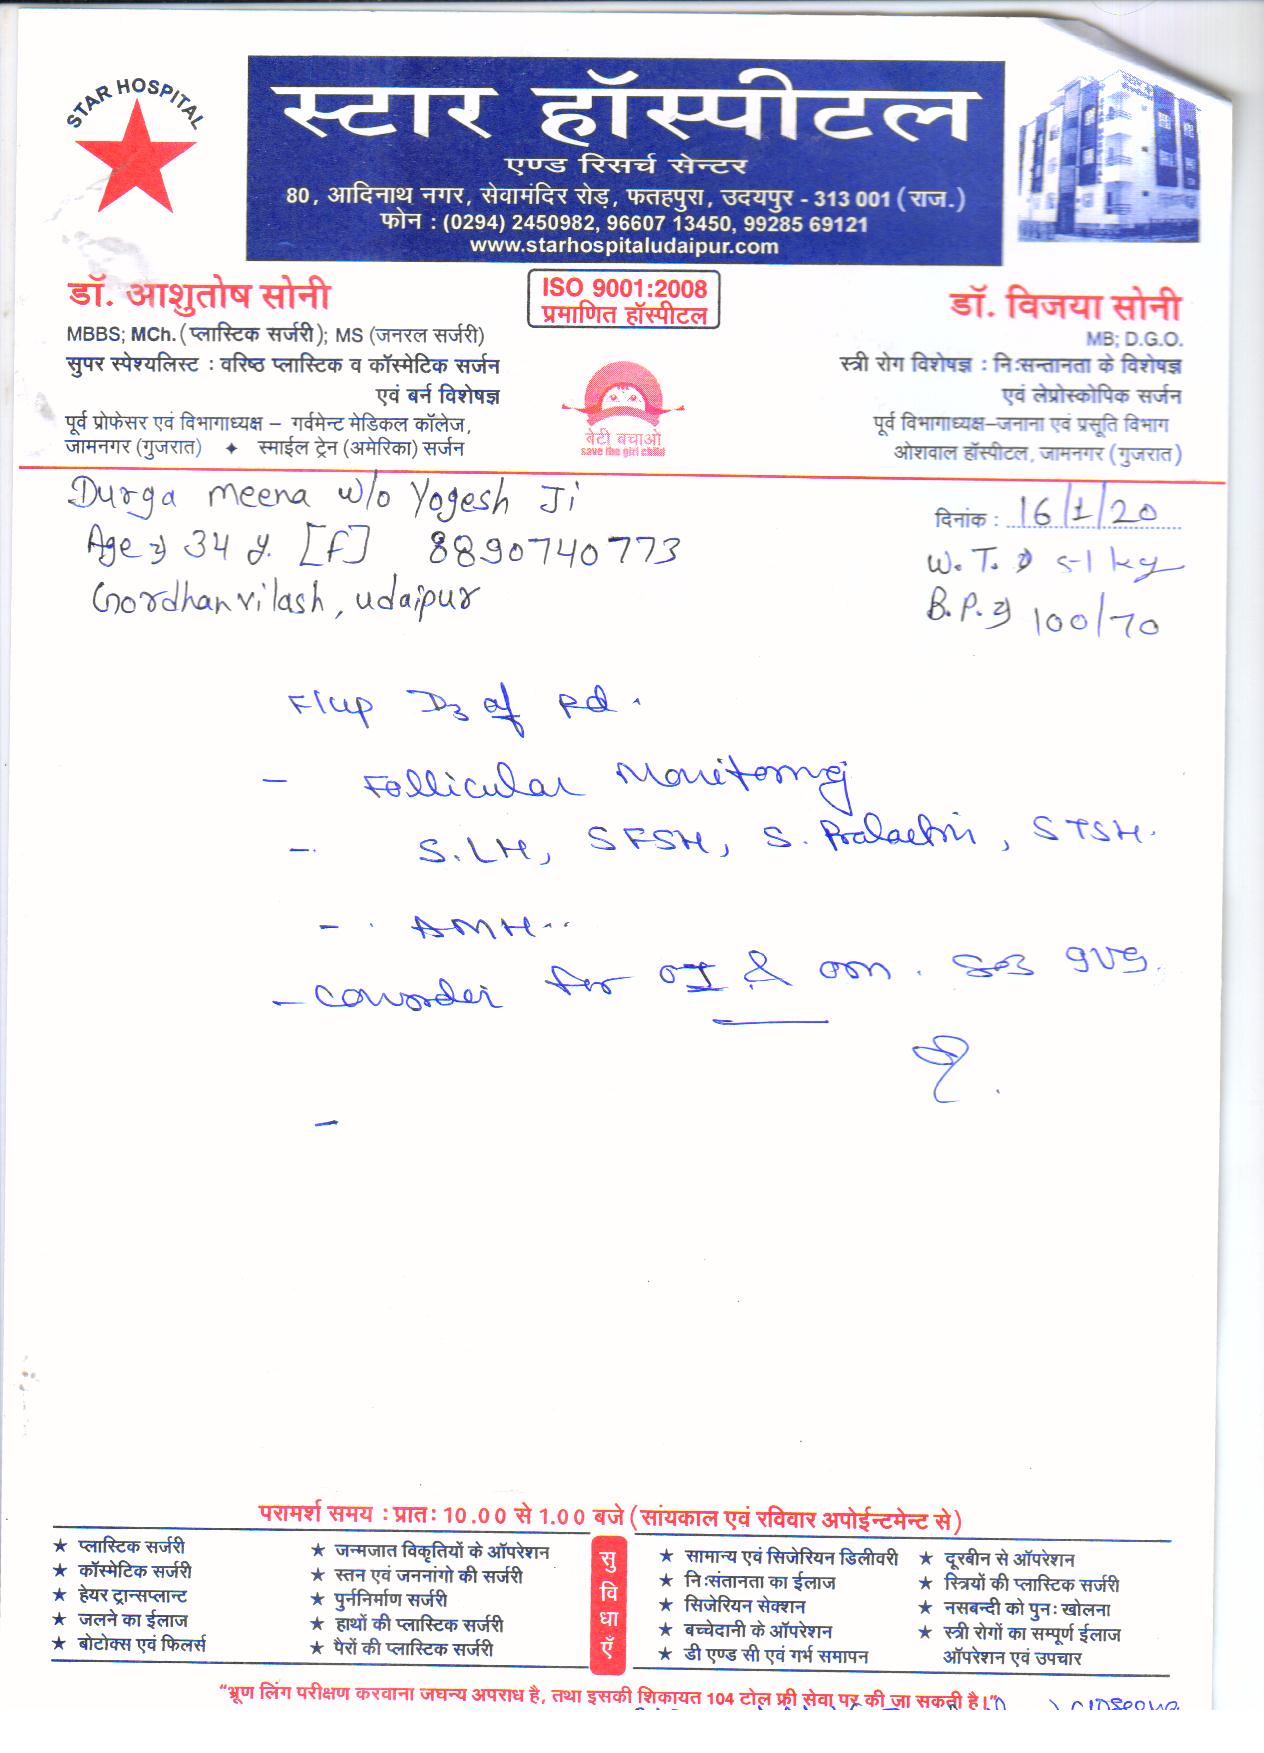 STAR HOSPITAL
स्टार हॉस्पीटल
एण्ड रिसर्च सेन्टर
80, आदिनाथ नगर, सेवामंदिर रोड़, फतहपुरा, उदयपुर - 313 001 (राज.)
फोन : (0294) 2450982, 96607 13450, 99285 69121
www.starhospitaludaipur.com
डॉ. आशुतोष सोनी
MBBS; MCh. (प्लास्टिक सर्जरी); MS (जनरल सर्जरी)
सुपर स्पेश्यलिस्ट : वरिष्ठ प्लास्टिक व कॉस्मेटिक सर्जन
एवं बर्न विशेषज्ञ
पूर्व प्रोफेसर एवं विभागाध्यक्ष – गर्वमेन्ट मेडिकल कॉलेज,
जामनगर (गुजरात) ✦ स्माईल ट्रेन (अमेरिका) सर्जन
ISO 9001:2008
प्रमाणित हॉस्पीटल
बेटी बचाओ
save the girl child
डॉ. विजया सोनी
MB; D.G.O.
स्त्री रोग विशेषज्ञ : निःसन्तानता के विशेषज्ञ
एवं लेप्रोस्कोपिक सर्जन
पूर्व विभागाध्यक्ष–जनाना एवं प्रसूति विभाग
ओशवाल हॉस्पीटल, जामनगर (गुजरात)
Durga Meena w/o Yogesh Ji
Age → 34 y. [F] 8890740773
Gordhanvilash, udaipur
दिनांक : 16/1/20
W.T. → 51 kg
B.P. → 100/70
F/up D3 of Pd.
- Follicular Monitoring
- S.LH, SFSH, S. Prolactin, STSH.
- AMH
- Consider for OI &
-
परामर्श समय : प्रातः 10.00 से 1.00 बजे (सांयकाल एवं रविवार अपोईन्टमेन्ट से)
★ प्लास्टिक सर्जरी
★ कॉस्मेटिक सर्जरी
★ हेयर ट्रान्सप्लान्ट
★ जलने का ईलाज
★ बोटोक्स एवं फिलर्स
★ जन्मजात विकृतियों के ऑपरेशन
★ स्तन एवं जननांगो की सर्जरी
★ पुर्ननिर्माण सर्जरी
★ हाथों की प्लास्टिक सर्जरी
★ पैरों की प्लास्टिक सर्जरी
सुविधाएँ
★ सामान्य एवं सिजेरियन डिलीवरी
★ निःसंतानता का ईलाज
★ सिजेरियन सेक्शन
★ बच्चेदानी के ऑपरेशन
★ डी एण्ड सी एवं गर्भ समापन
★ दूरबीन से ऑपरेशन
★ स्त्रियों की प्लास्टिक सर्जरी
★ नसबन्दी को पुनः खोलना
★ स्त्री रोगों का सम्पूर्ण ईलाज
ऑपरेशन एवं उपचार
“भ्रूण लिंग परीक्षण करवाना जघन्य अपराध है, तथा इसकी शिकायत 104 टोल फ्री सेवा पर की जा सकती है।”